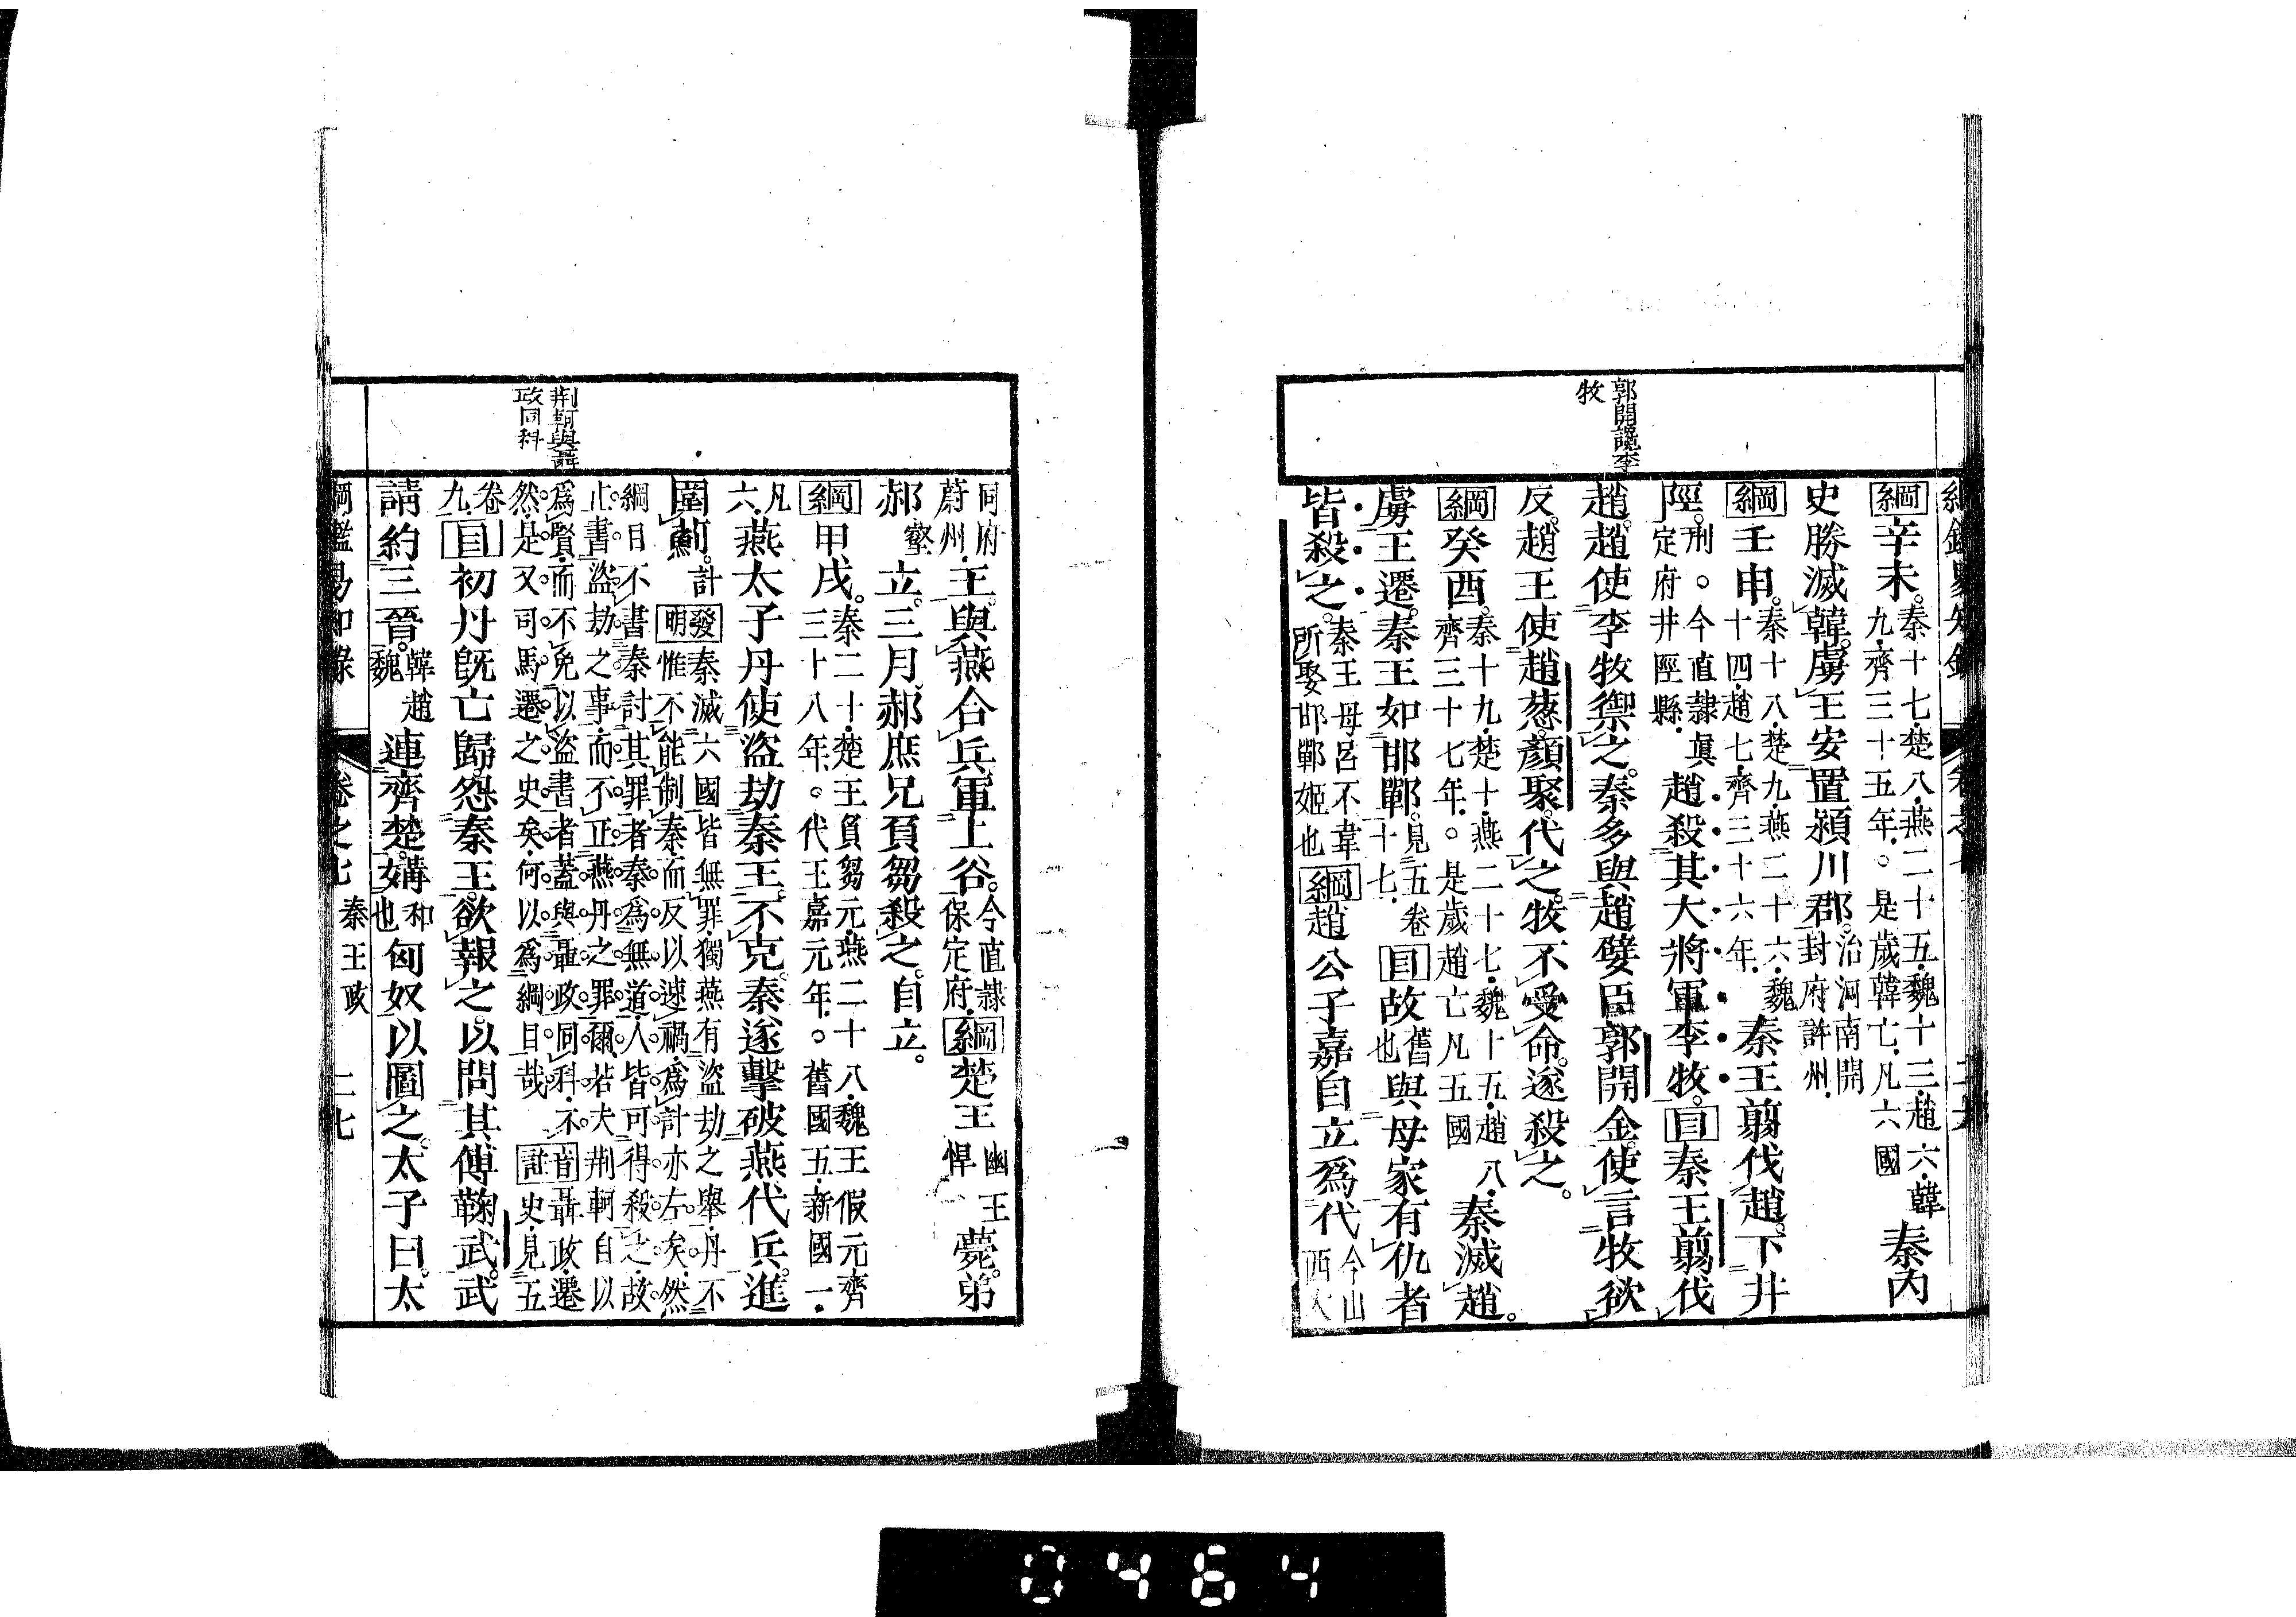 郭開讒李
牧
綱辛未。秦十七。楚八。燕二十五。魏十三。趙六。韓
九。齊三十五年。○是歲韓亡。凡六國
秦內
史勝滅韓。虜王安。置潁川郡。治河南開
封府許州。
綱壬申。秦十八。楚九。燕二十六。魏
十四。趙七。齊三十六年。
秦王翦伐趙。下井
陘。刑。○今直隷眞
定府井陘縣。
趙殺其大將軍李牧。目秦王翦伐
趙。趙使李牧禦之。秦多與趙嬖臣郭開金。使言牧欲
反。趙王使趙葱。顏聚。代之。牧不受命。遂殺之。
綱癸酉。秦十九。楚十。燕二十七。魏十五。趙八。
齊三十七年。○是歲趙亡凡五國
秦滅趙。
虜王遷。秦王如邯鄲。見五卷
十七。
目故舊
也
與母家有仇者
皆殺之。秦王母。呂不韋
所娶邯鄲姬也
綱趙公子嘉自立爲代
今山
西大
荆軻與聶
政同科
同府
蔚州。
王。與燕合兵軍上谷。今直隷
保定府。
綱楚王
幽王
悍
薨。弟
郝壑
立。三月。郝庶兄負芻殺之。自立。
綱甲戌。秦二十。楚王負芻元。燕二十八。魏王假元。齊
三十八年。○代王嘉元年。○舊國五。新國一。
凡
六。
燕太子丹使盜劫秦王。不克。秦遂擊破燕代兵。進
圍薊。計
發明
秦滅六國皆無罪。獨燕有盜劫之擧。丹不
惟不能制秦。而反以速禍。爲計亦左矣。然
綱目不書秦討其罪者。秦爲無道。人皆可得殺之。故
止書盜劫之事。而不正燕丹之罪爾。若夫荆軻自以
爲賢。而不免以盜書者。蓋與聶政同科。不
然。是又司馬遷之史矣。何以爲綱目哉
音註
聶政。遷
史。見五
卷
九。
目初丹既亡歸。怨秦王。欲報之。以問其傅鞠武。武
請約三晉。韓趙
魏
連齊楚。媾和
也
匈奴以圖之。太子曰。太
綱鑑易知錄
卷之七
秦王政
二七